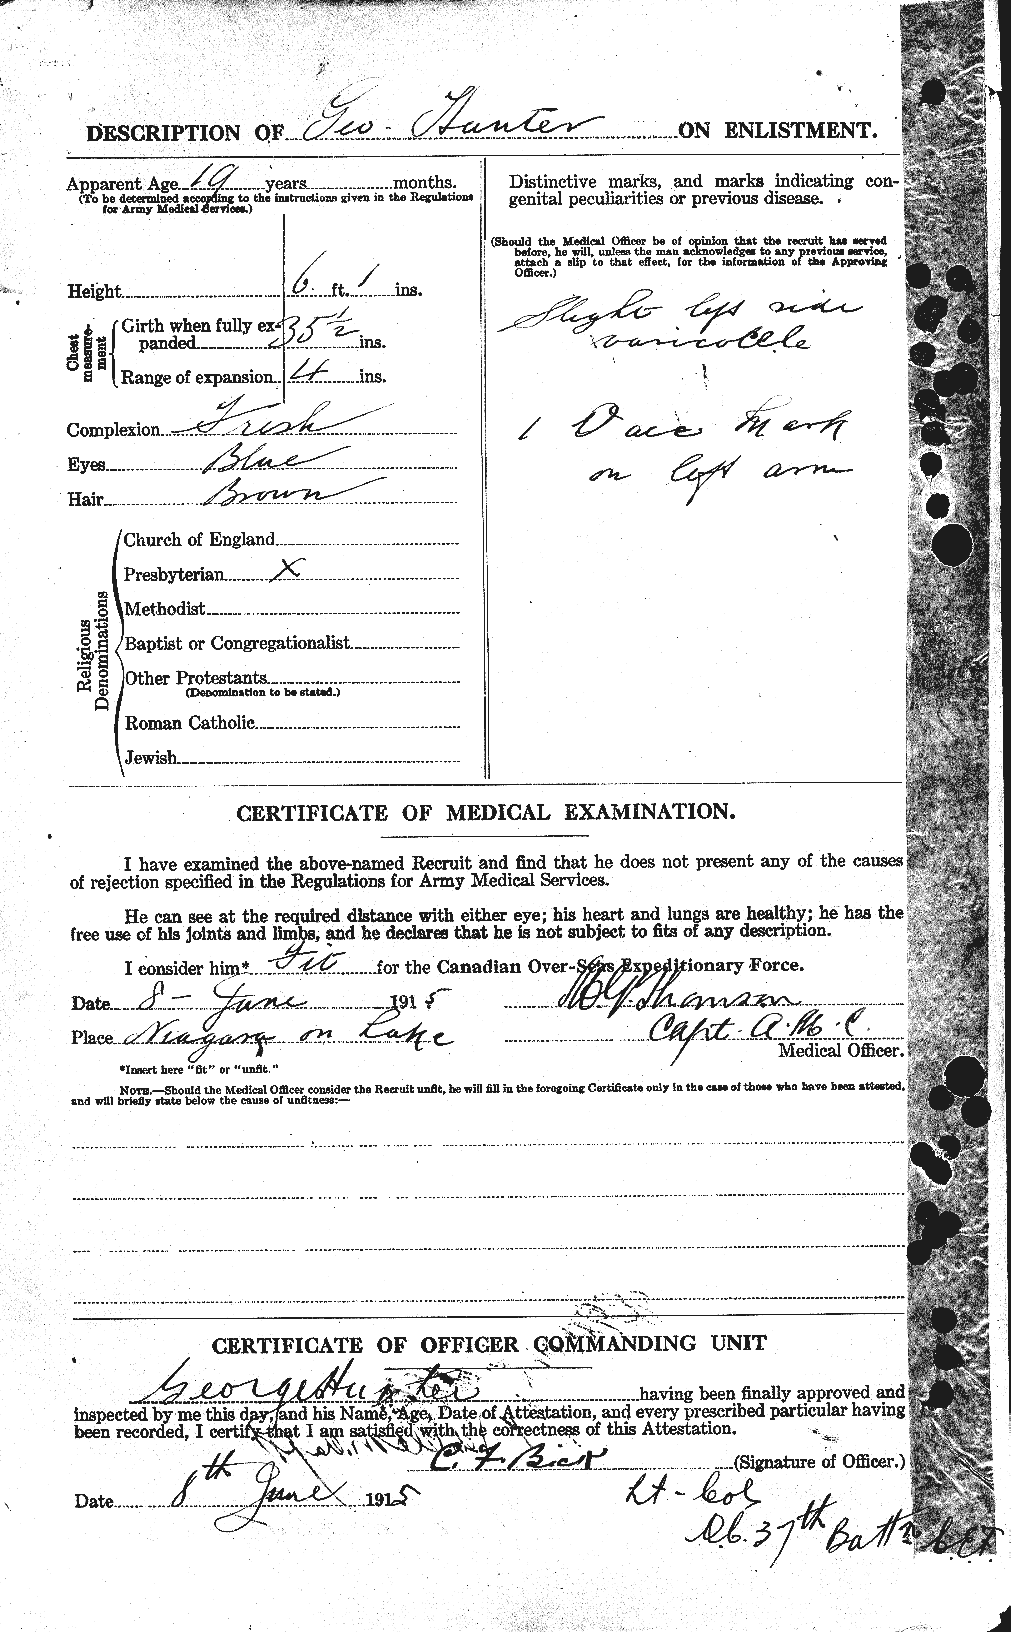 DESCRIPTION OF Geo. Hunter ON ENLISTMENT.
Apparent Age 19 years months.
(To be determined according to the instructions given in the Regulations
for Army Medical Services.)
Height 6 ft. 1 ins.
Chest measurement
Girth when fully ex-
panded 35 1/2 ins.
Range of expansion 4 ins.
Complexion Fresh
Eyes Blue
Hair Brown
Religious Denominations
Church of England
Presbyterian X
Methodist
Baptist or Congregationalist
Other Protestants
(Denomination to be stated.)
Roman Catholic
Jewish
Distinctive marks, and marks indicating con-
genital peculiarities or previous disease.
(Should the Medical Officer be of opinion that the recruit has served
before, he will, unless the man acknowledges to any previous service,
attach a slip to that effect, for the information of the Approving
Officer.)
Slight left side
varicocele
1 Vacc Mark
on left arm
CERTIFICATE OF MEDICAL EXAMINATION.
I have examined the above-named Recruit and find that he does not present any of the causes
of rejection specified in the Regulations for Army Medical Services.
He can see at the required distance with either eye; his heart and lungs are healthy; he has the
free use of his joints and limbs, and he declares that he is not subject to fits of any description.
I consider him* Fit for the Canadian Over-Seas Expeditionary Force.
Date 8 - June 1915
Thomson
Place Niagara on Lake
Capt. A.M.C.
Medical Officer.
*Insert here "fit" or "unfit."
NOTE.—Should the Medical Officer consider the Recruit unfit, he will fill in the foregoing Certificate only in the case of those who have been attested,
and will briefly state below the cause of unfitness:—
CERTIFICATE OF OFFICER COMMANDING UNIT
George Hunter having been finally approved and
inspected by me this day, and his Name, Age, Date of Attestation, and every prescribed particular having
been recorded, I certify that I am satisfied with the correctness of this Attestation.
C. F. Bick (Signature of Officer.)
Date 8th June 1915
Lt-Col
O.C. 37th Battn C.E.F.